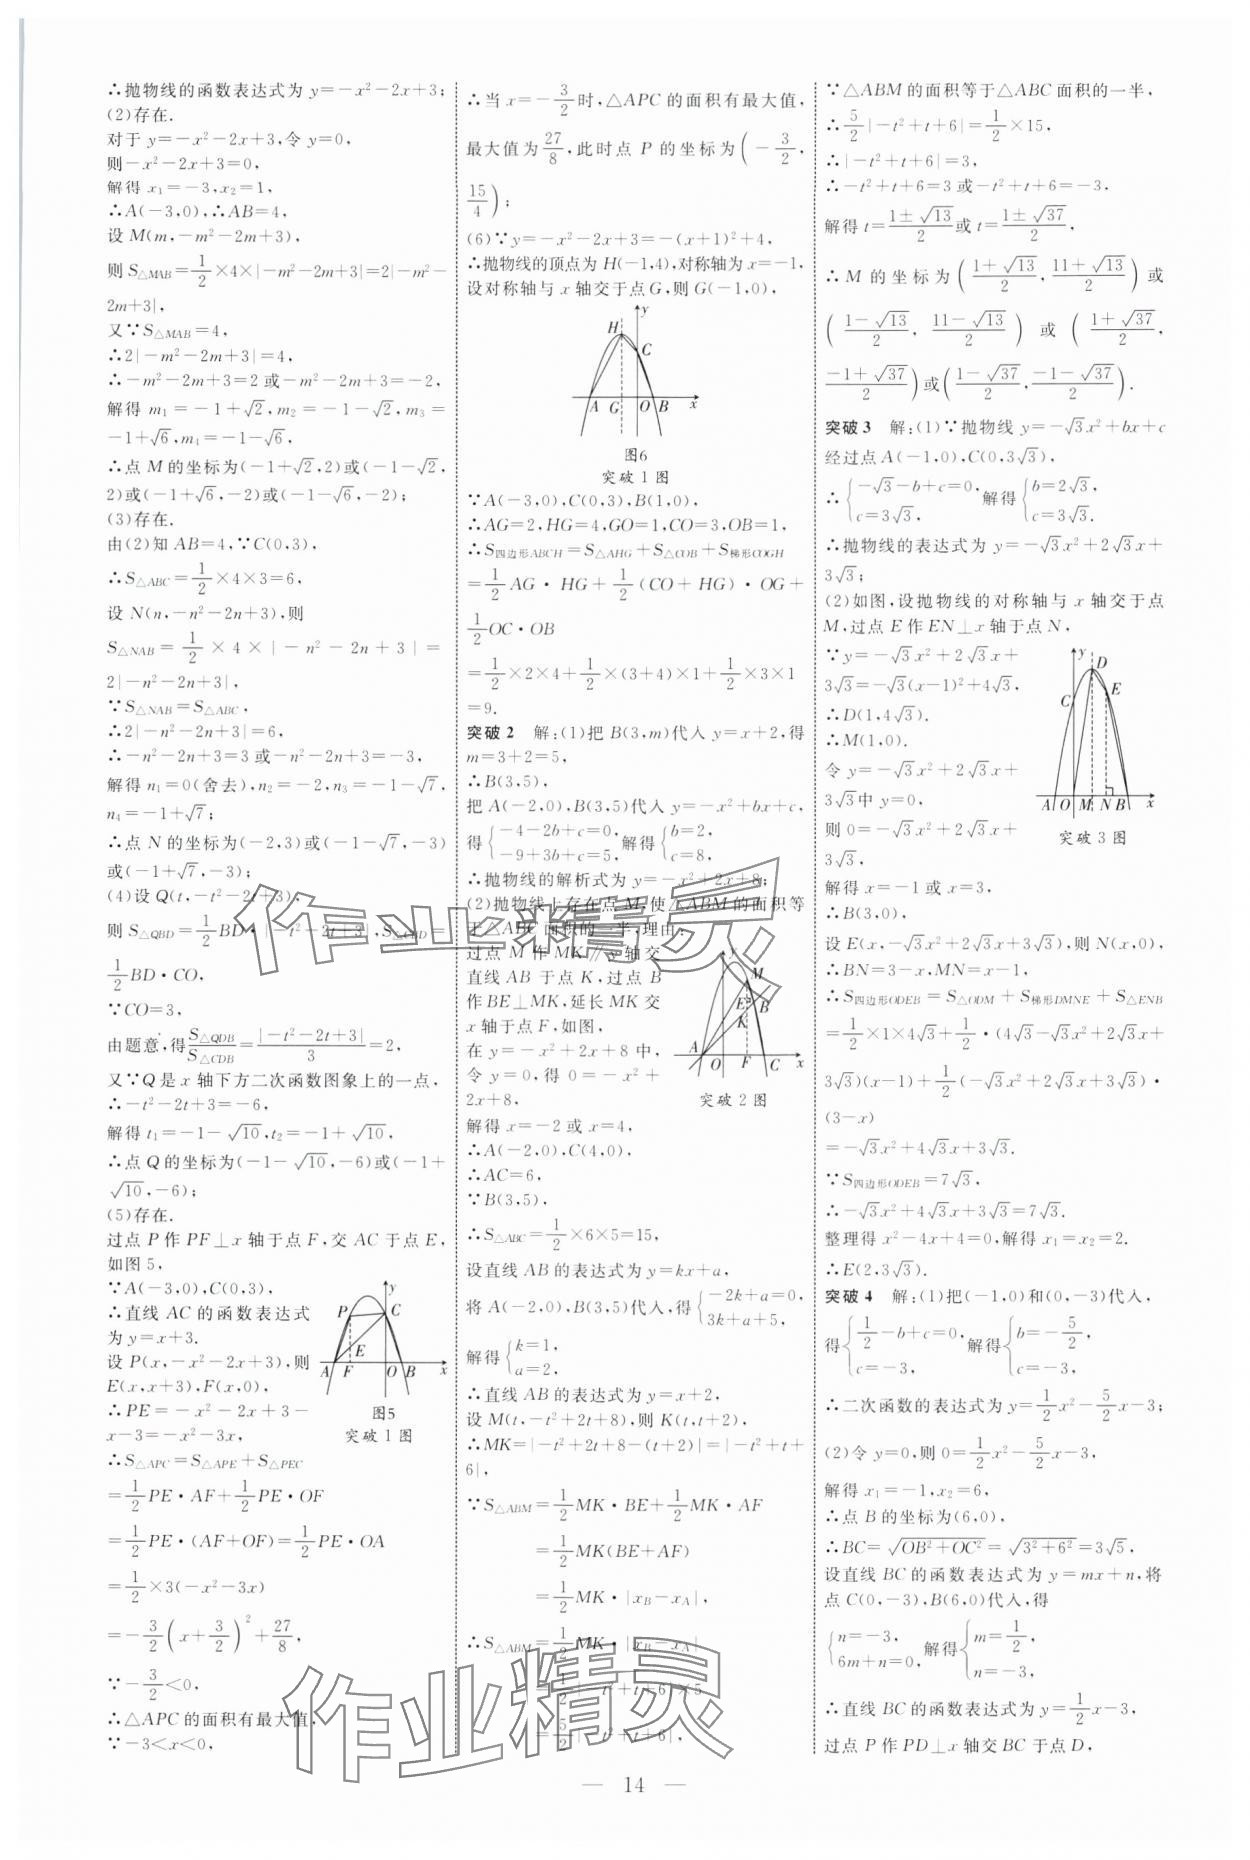 ∴抛物线的函数表达式为 y=-x²-2x+3;
(2)存在.
对于 y=-x²-2x+3,令 y=0,
则-x²-2x+3=0,
解得 x₁=-3,x₂=1,
∴A(-3,0),∴AB=4,
设 M(m,-m²-2m+3),
则 S△MAB=1/2×4×|-m²-2m+3|=2|-m²-
2m+3|,
又∵S△MAB=4,
∴2|-m²-2m+3|=4,
∴-m²-2m+3=2 或-m²-2m+3=-2,
解得 m₁=-1+√2,m₂=-1-√2,m₃=
-1+√6,m₄=-1-√6,
∴点 M 的坐标为(-1+√2,2)或(-1-√2,
2)或(-1+√6,-2)或(-1-√6,-2);
(3)存在.
由(2)知 AB=4,∵C(0,3),
∴S△ABC=1/2×4×3=6,
设 N(n,-n²-2n+3),则
S△NAB=1/2×4×|-n²-2n+3|=
2|-n²-2n+3|,
∵S△NAB=S△ABC,
∴2|-n²-2n+3|=6,
∴-n²-2n+3=3 或-n²-2n+3=-3,
解得 n₁=0(舍去),n₂=-2,n₃=-1-√7,
n₄=-1+√7;
∴点 N 的坐标为(-2,3)或(-1-√7,-3)
或(-1+√7,-3);
(4)设 Q(t,-t²-2t+3),
则 S△QBD=1/2BD·|-t²-2t+3|,S△CBD=
1/2BD·CO,
∵CO=3,
由题意,得S△QDB/S△CDB=|-t²-2t+3|/3=2,
又∵Q 是 x 轴下方二次函数图象上的一点,
∴-t²-2t+3=-6,
解得 t₁=-1-√10,t₂=-1+√10,
∴点 Q 的坐标为(-1-√10,-6)或(-1+
√10,-6);
(5)存在.
过点 P 作 PF⊥x 轴于点 F,交 AC 于点 E,
如图 5,
∵A(-3,0),C(0,3),
∴直线 AC 的函数表达式
为 y=x+3.
设 P(x,-x²-2x+3),则
E(x,x+3),F(x,0),
∴PE=-x²-2x+3-
x-3=-x²-3x,
y
P
C
E
A
F
O
B
x
图5
突破 1 图
∴S△APC=S△APE+S△PEC
=1/2PE·AF+1/2PE·OF
=1/2PE·(AF+OF)=1/2PE·OA
=1/2×3(-x²-3x)
=-3/2(x+3/2)²+27/8,
∵-3/2<0,
∴△APC 的面积有最大值,
∵-3<x<0,
∴当 x=-3/2时,△APC 的面积有最大值,
最大值为27/8,此时点 P 的坐标为(-3/2,
15/4);
(6)∵y=-x²-2x+3=-(x+1)²+4,
∴抛物线的顶点为 H(-1,4),对称轴为 x=-1,
设对称轴与 x 轴交于点 G,则 G(-1,0),
y
H
C
A
G
O
B
x
图6
突破 1 图
∵A(-3,0),C(0,3),B(1,0),
∴AG=2,HG=4,GO=1,CO=3,OB=1,
∴S四边形ABCH=S△AHG+S△COB+S梯形COGH
=1/2AG·HG+1/2(CO+HG)·OG+
1/2OC·OB
=1/2×2×4+1/2×(3+4)×1+1/2×3×1
=9.
突破 2 解:(1)把 B(3,m)代入 y=x+2,得
m=3+2=5,
∴B(3,5),
把 A(-2,0),B(3,5)代入 y=-x²+bx+c,
得{-4-2b+c=0, -9+3b+c=5, 解得{b=2, c=8,
∴抛物线的解析式为 y=-x²+2x+8;
(2)抛物线上存在点 M,使△ABM 的面积等
于△ABC 面积的一半,理由:
过点 M 作 MK∥y 轴交
直线 AB 于点 K,过点 B
作 BE⊥MK,延长 MK 交
x 轴于点 F,如图,
在 y=-x²+2x+8 中,
令 y=0,得 0=-x²+
2x+8,
y
M
E
B
K
A
O
F
C
x
突破 2 图
解得 x=-2 或 x=4,
∴A(-2,0),C(4,0),
∴AC=6,
∵B(3,5),
∴S△ABC=1/2×6×5=15,
设直线 AB 的表达式为 y=kx+a,
将 A(-2,0),B(3,5)代入,得{-2k+a=0, 3k+a+5,
解得{k=1, a=2,
∴直线 AB 的表达式为 y=x+2,
设 M(t,-t²+2t+8),则 K(t,t+2),
∴MK=|-t²+2t+8-(t+2)|=|-t²+t+
6|,
∵S△ABM=1/2MK·BE+1/2MK·AF
=1/2MK(BE+AF)
=1/2MK·|xB-xA|,
∴S△ABM=1/2MK·|xB-xA|
=1/2|-t²+t+6|×5
=5/2|-t²+t+6|,
∵△ABM 的面积等于△ABC 面积的一半,
∴5/2|-t²+t+6|=1/2×15,
∴|-t²+t+6|=3,
∴-t²+t+6=3 或-t²+t+6=-3,
解得 t=(1±√13)/2或 t=(1±√37)/2,
∴M 的坐标为((1+√13)/2,(11+√13)/2)或
((1-√13)/2,(11-√13)/2)或((1+√37)/2,
(-1+√37)/2)或((1-√37)/2,(-1-√37)/2).
突破 3 解:(1)∵抛物线 y=-√3x²+bx+c
经过点 A(-1,0),C(0,3√3),
∴{-√3-b+c=0, c=3√3, 解得{b=2√3, c=3√3.
∴抛物线的表达式为 y=-√3x²+2√3x+
3√3;
(2)如图,设抛物线的对称轴与 x 轴交于点
M,过点 E 作 EN⊥x 轴于点 N,
∵y=-√3x²+2√3x+
3√3=-√3(x-1)²+4√3,
∴D(1,4√3).
∴M(1,0).
令 y=-√3x²+2√3x+
3√3中 y=0,
则 0=-√3x²+2√3x+
3√3,
y
D
C
E
A
O
M
N
B
x
突破 3 图
解得 x=-1 或 x=3,
∴B(3,0),
设 E(x,-√3x²+2√3x+3√3),则 N(x,0),
∴BN=3-x,MN=x-1,
∴S四边形ODEB=S△ODM+S梯形DMNE+S△ENB
=1/2×1×4√3+1/2·(4√3-√3x²+2√3x+
3√3)(x-1)+1/2(-√3x²+2√3x+3√3)·
(3-x)
=-√3x²+4√3x+3√3.
∵S四边形ODEB=7√3,
∴-√3x²+4√3x+3√3=7√3.
整理得 x²-4x+4=0,解得 x₁=x₂=2.
∴E(2,3√3).
突破 4 解:(1)把(-1,0)和(0,-3)代入,
得{1/2-b+c=0, c=-3, 解得{b=-5/2, c=-3,
∴二次函数的表达式为 y=1/2x²-5/2x-3;
(2)令 y=0,则 0=1/2x²-5/2x-3,
解得 x₁=-1,x₂=6,
∴点 B 的坐标为(6,0),
∴BC=√(OB²+OC²)=√(3²+6²)=3√5,
设直线 BC 的函数表达式为 y=mx+n,将
点 C(0,-3),B(6,0)代入,得
{n=-3, 6m+n=0, 解得{m=1/2, n=-3,
∴直线 BC 的函数表达式为 y=1/2x-3,
过点 P 作 PD⊥x 轴交 BC 于点 D,
作业精灵
作业精灵
— 14 —